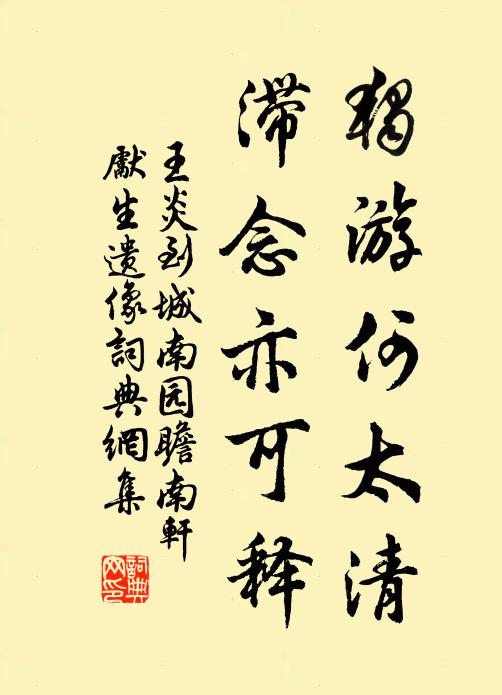 獨游何太清
滞念亦可释
王炎到城南园瞻南軒
獻生遗像詞典網集
詞典
网印